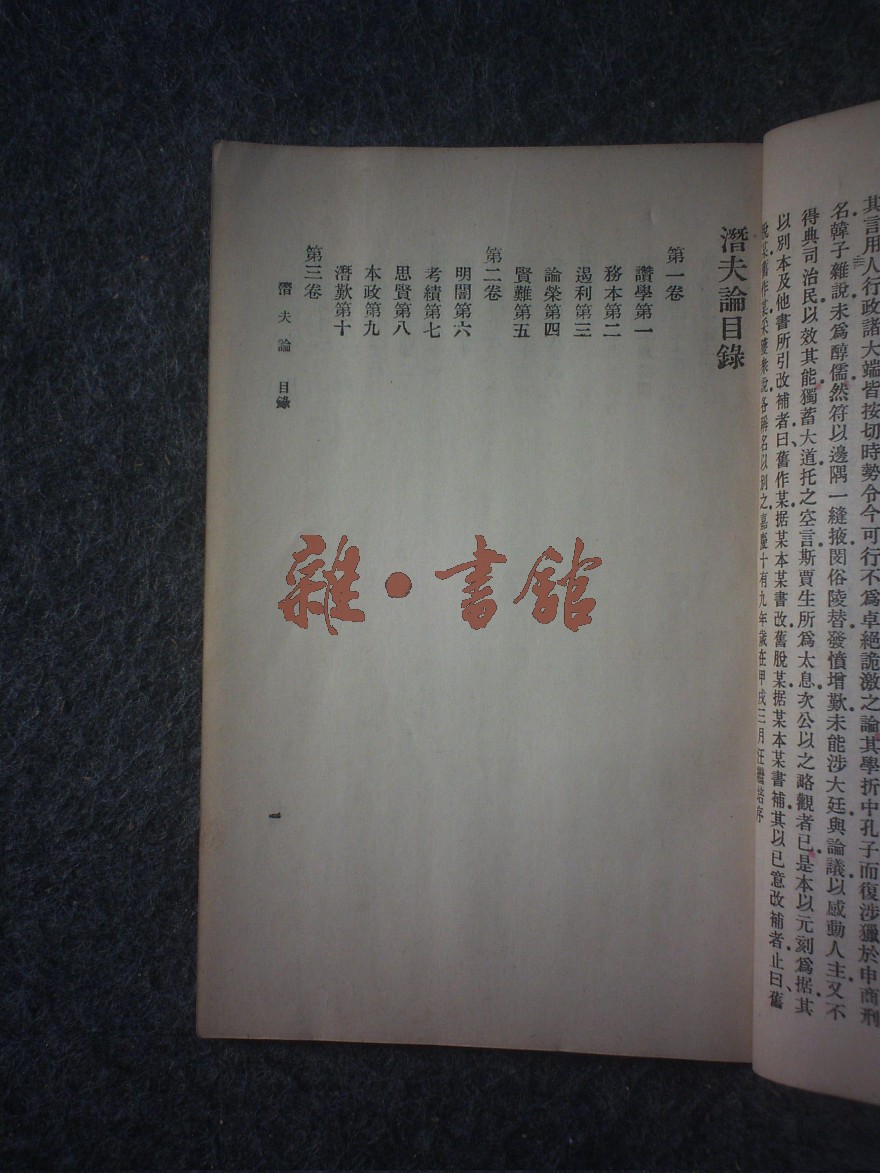 其言用人行政諸大端皆按切時勢令今可行不爲卓絕詭激之論其學折中孔子而復涉獵於申商刑
名韓子雜說未爲醇儒然符以邊隅一縫掖閔俗陵替發憤增歎未能涉大廷與論議以感動人主又不
得典司治民以效其能獨蓄大道托之空言斯賈生所爲太息次公以之略觀者已是本以元刻爲据其
以別本及他書所引改補者曰舊作某据某本某書改舊脫某据某本某書補其以已意改補者止曰舊
脫某舊作某采獲衆說各稱名以別之嘉慶十有九年歲在甲戌三月汪繼培序
潛夫論目錄
第一卷
讚學第一
務本第二
遏利第三
論榮第四
賢難第五
第二卷
明闇第六
考績第七
思賢第八
本政第九
潛歎第十
第三卷
潛夫論 目錄
一
雜·書館